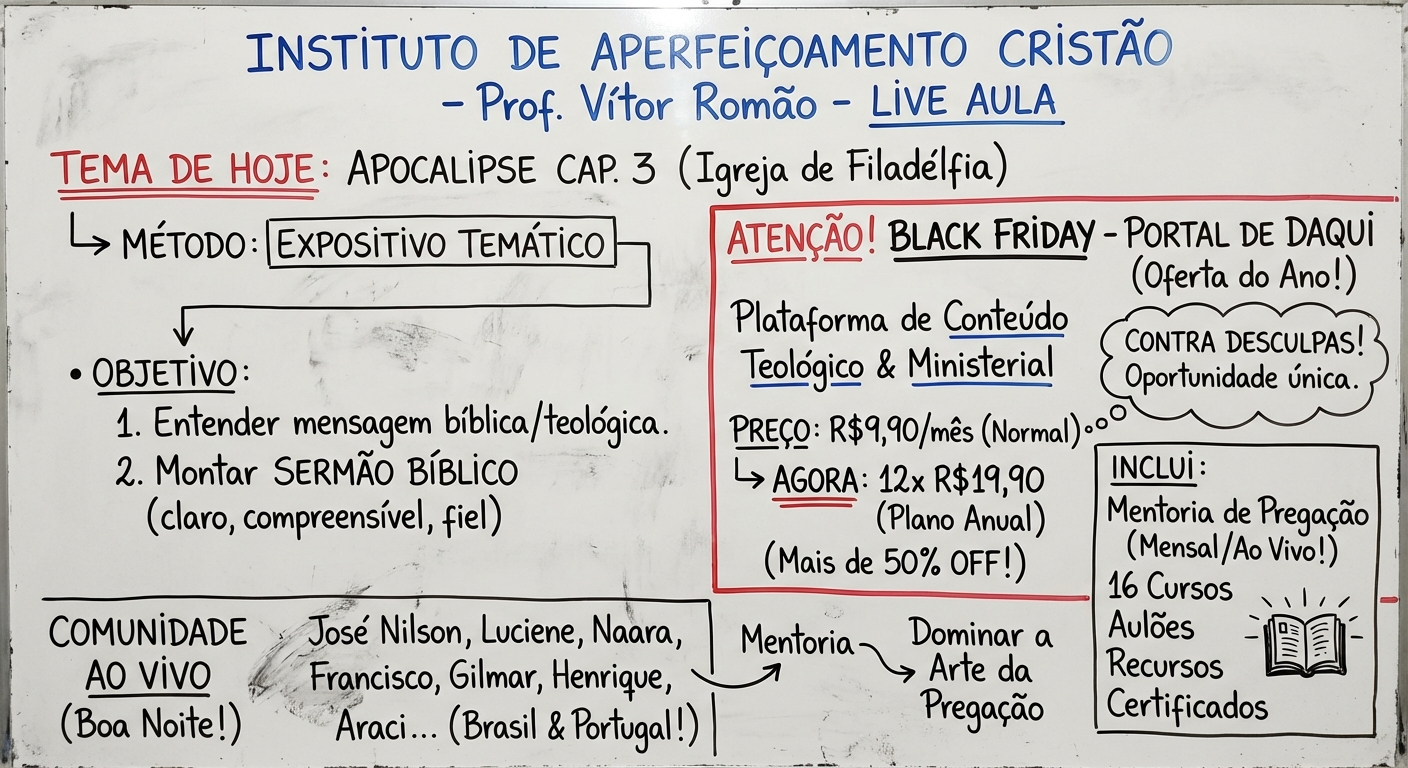 INSTITUTO DE APERFEIÇOAMENTO CRISTÃO
- Prof. Vítor Romão - LIVE AULA
TEMA DE HOJE: APOCALIPSE CAP. 3 (Igreja de Filadélfia)
MÉTODO: EXPOSITIVO TEMÁTICO
• OBJETIVO:
1. Entender mensagem bíblica/teológica.
2. Montar SERMÃO BÍBLICO
(claro, compreensível, fiel)
ATENÇÃO! BLACK FRIDAY - PORTAL DE DAQUI
(Oferta do Ano!)
Plataforma de Conteúdo
Teológico & Ministerial
CONTRA DESCULPAS!
Oportunidade única.
PREÇO: R$9,90/mês (Normal)
AGORA: 12x R$19,90
(Plano Anual)
(Mais de 50% OFF!)
INCLUI:
Mentoria de Pregação
(Mensal/Ao Vivo!)
16 Cursos
Aulões
Recursos
Certificados
COMUNIDADE
AO VIVO
(Boa Noite!)
José Nilson, Luciene, Naara,
Francisco, Gilmar, Henrique,
Araci... (Brasil & Portugal!)
Mentoria
Dominar a
Arte da
Pregação